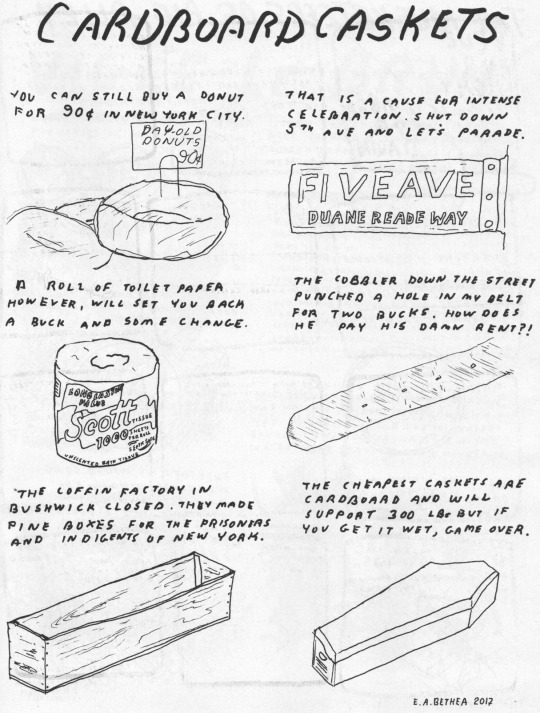 CARDBOARD CASKETS
YOU CAN STILL BUY A DONUT
FOR 90¢ IN NEW YORK CITY.
DAY-OLD
DONUTS
90¢
THAT IS A CAUSE FOR INTENSE
CELEBRATION. SHUT DOWN
5TH AVE AND LET'S PARADE.
FIVE AVE
DUANE READE WAY
A ROLL OF TOILET PAPER
HOWEVER, WILL SET YOU BACK
A BUCK AND SOME CHANGE.
LONG LASTING
VALUE
Scott
TISSUE
1000
SHEETS
PER ROLL
UNSCENTED BATH TISSUE
THE COBBLER DOWN THE STREET
PUNCHED A HOLE IN MY BELT
FOR TWO BUCKS. HOW DOES
HE PAY HIS DAMN RENT?!
THE COFFIN FACTORY IN
BUSHWICK CLOSED. THEY MADE
PINE BOXES FOR THE PRISONERS
AND INDIGENTS OF NEW YORK.
THE CHEAPEST CASKETS ARE
CARDBOARD AND WILL
SUPPORT 300 LBS BUT IF
YOU GET IT WET, GAME OVER.
E.A. BETHEA 2017